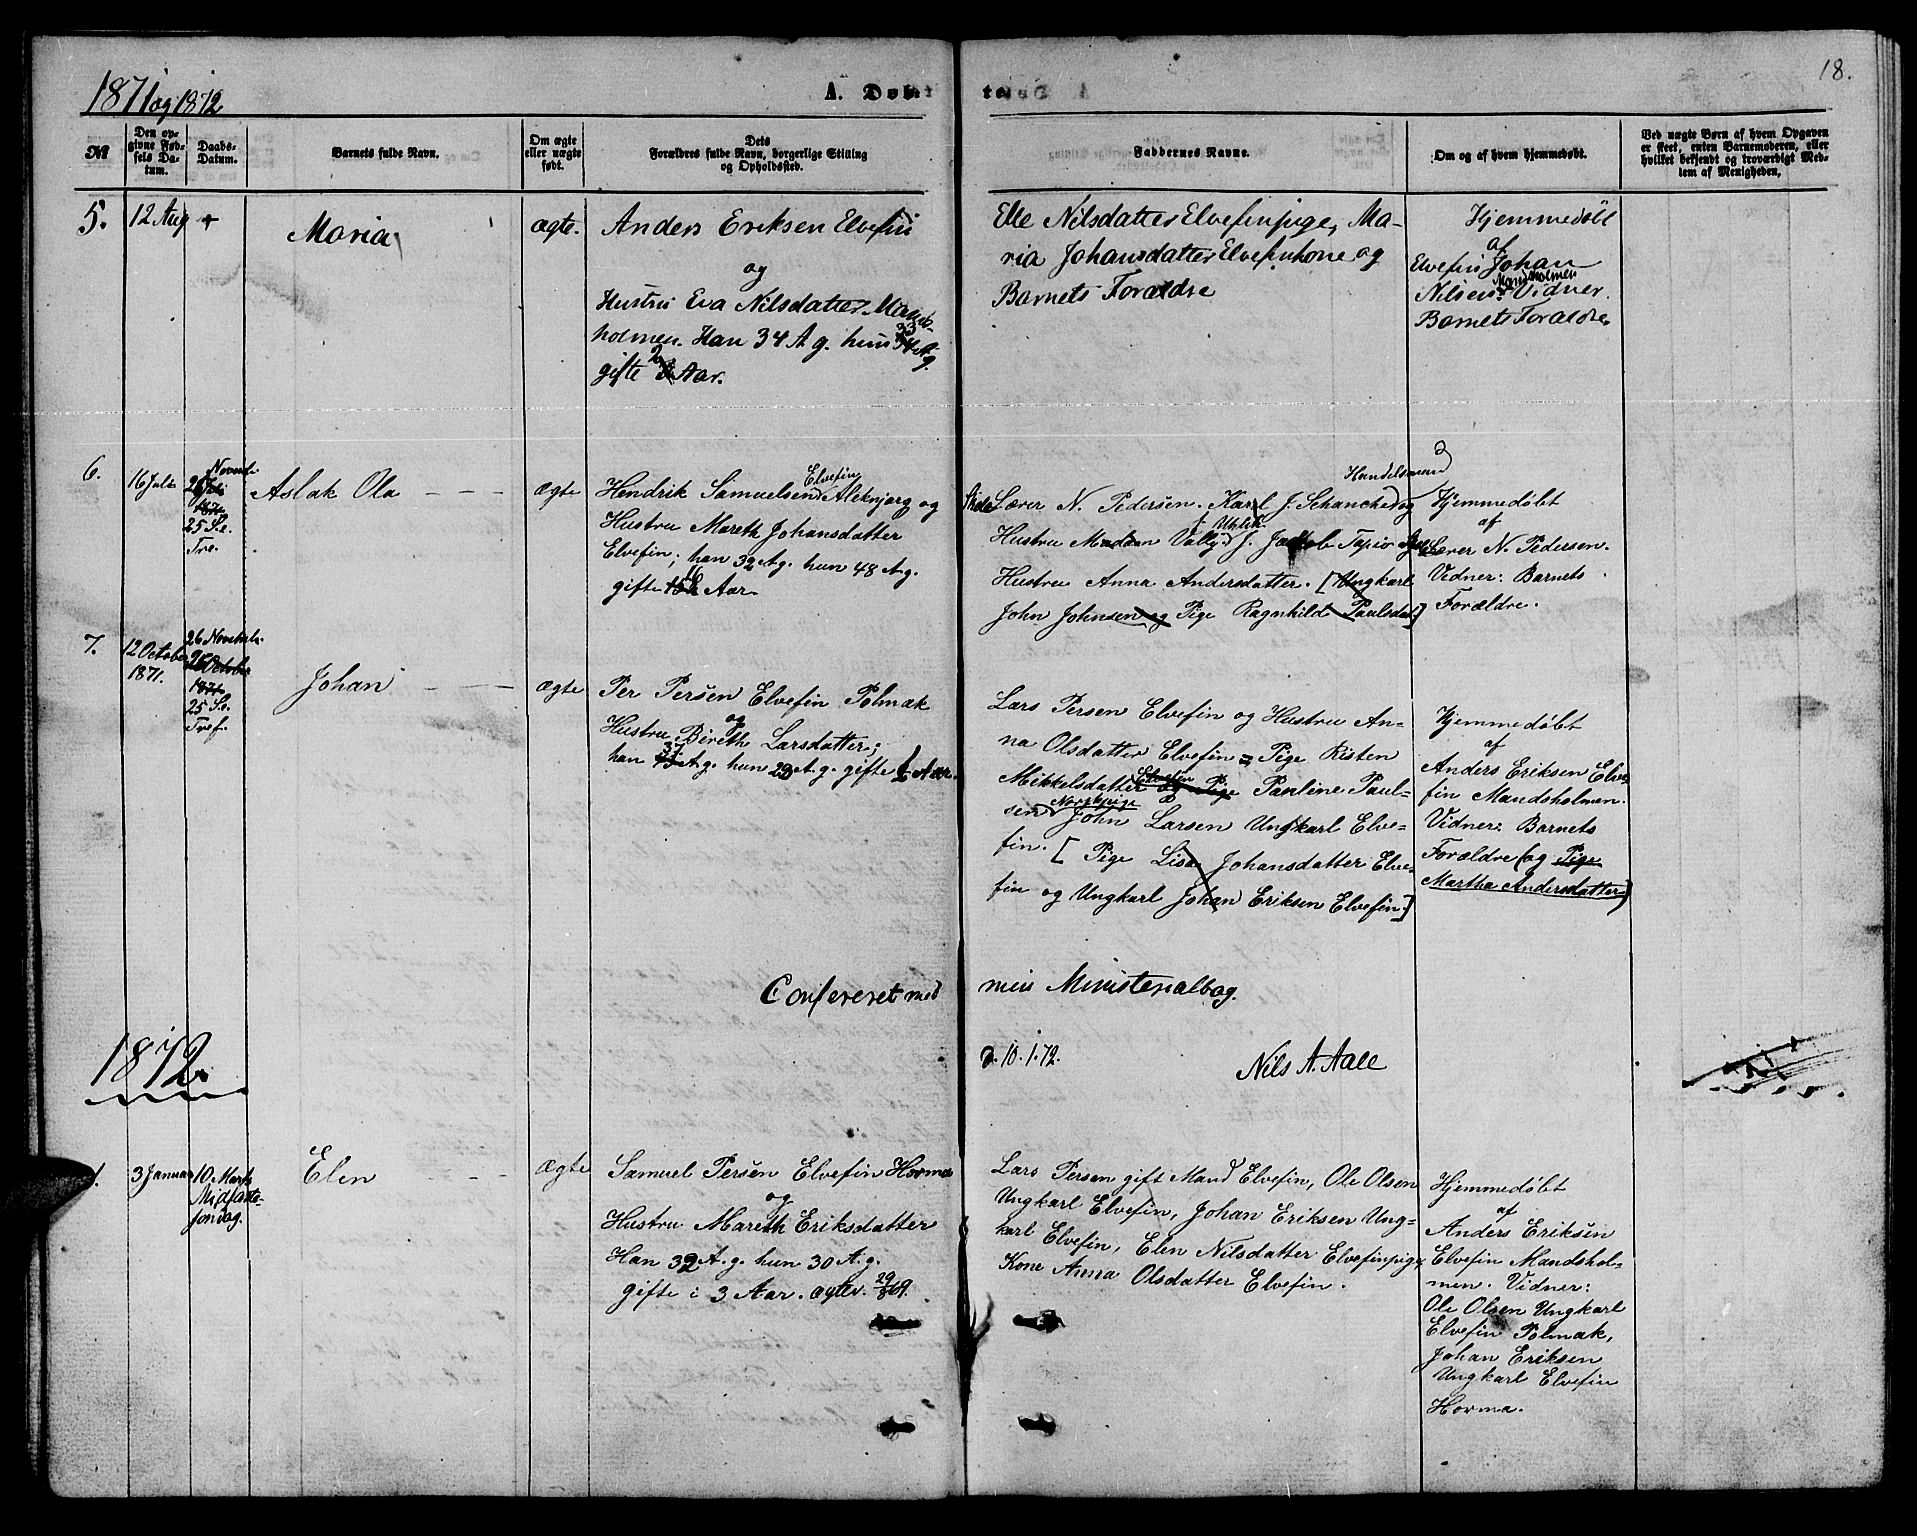 18.
1871 og 1872
A. Døbte
№
Den opgivne Fødsels Datum.
Daabs-Datum.
Barnets fulde Navn.
Om ægte eller uægte født.
Dets Forældres fulde Navn, borgerlige Stilling og Opholdssted.
Faddernes Navne.
Om og af hvem hjemmedøbt.
Ved uægte Børn af hvem Opgaven er skeet, enten Barnemoderen, eller hvilket bekjendt og troværdigt Medlem af Menigheden.
5. 12 Aug +
Maria
ægte.
Anders Eriksen Elvefin
og
Hustru Eva Nilsdatter Mands-
holmen. Han 34 A g. hun 33 A g.
gifte 2 Aar.
Elle Nilsdatter Elvefinpige, Ma-
ria Johansdatter Elvefinkone og
Barnets Forældre
Hjemmedøbt
af
Elvefin Johan
Mandsholmen
Nilsen. Vidner.
Barnets Forældre.
6. 16 Juli
26 Novemb.
1871
25 S. e.
Tre.
Aslak Ola
ægte
Hendrik Samuelsen Elvefin Aleknjarg og
Hustru Mareth Johansdatter
Elvefin; han 32 A.g. hun 48 A.g.
gifte Aar
Handelsmand
Lærer N. Pedersen. Karl J. Schanche og
Hustru Madam Vally J. Jakob Tapio
Hustru Anna Andersdatter. [Ungkarl
John Johnsen og Pige Ragnhild Paulsdat]
Hjemmedøbt
af
Lærer N. Pedersen.
Vidner: Barnets
Forældre.
7. 12 October
1871.
26 Novemb.
26 October
1871
25 S. e.
Tref.
Johan
ægte
Per Persen Elvefin Polmak
og
Hustru Bireth Larsdatter;
han 37 A.g. hun 23 A.g. gifte ½ Aar.
Lars Persen Elvefin og Hustru An-
na Olsdatter Elvefin = Pige Risten
Mikkelsdatter Elvefin og Pige Pauline Paul-
sen Norskpige John Larsen Ungkarl Elve=
fin. [Pige Lisa Johansdatter Elve-
fin og Ungkarl Johan Eriksen Elvefin.]
Hjemmedøbt
af
Anders Eriksen Elve
fin Mandsholmen.
Vidner: Barnets
Forældre (og Pige
Martha Andersdatter)
Confereret med min Ministerialbog.
1872.
d. 10.1.72. Nils A. Aall
1. 3 Januar
10 Marts
Midfaste-
søndag.
Elen
ægte
Samuel Persen Elvefin Horma
og
Hustru Mareth Eriksdatter
Han 32 A.g. hun 30 A.g.
gifte i 3 Aar.
Lars Persen gift Mand Elvefin, Ole Olsen
Ungkarl Elvefin, Johan Eriksen Ung=
karl Elvefin, Elen Nilsdatter Elvefinpige
Kone Anna Olsdatter Elvefin.
Hjemmedøbt
af
Anders Eriksen
Elvefin Mandshol-
men. Vidner:
Ole Olsen Ungkarl
Elvefin Polmak,
Johan Eriksen
Ungkarl Elvefin
Horma.